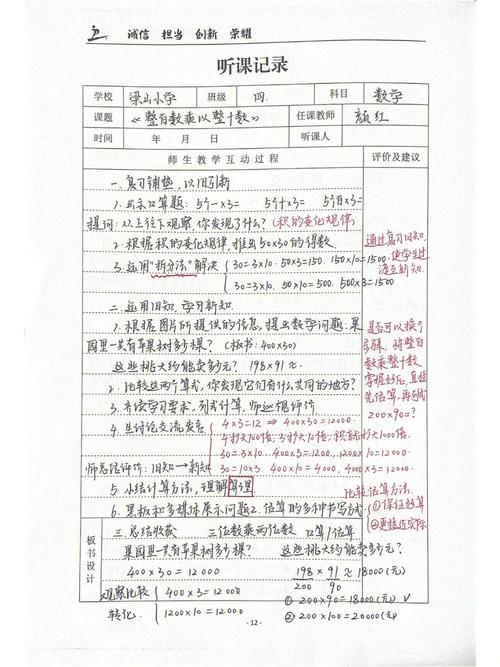 诚信 担当 创新 荣耀
听课记录
学校 梁山小学 班级 四. 科目 数学
课题 《整百数乘以整十数》 任课教师 颜红
时间 年 月 日 听课人
师生教学互动过程 评价及建议
一.复习铺垫,以旧引新
1.出示口算题: 5个一×3= 5个十×3= 5个百×3=
提问:从上往下观察,你发现了什么?(积的变化规律)
2.根据积的变化规律,推出50×30的得数.
3.运用"拆分法"解决 30=3×10. 50×3=150. 150×10=1500.
30=3×10. 50×10=500. 500×3=1500
通过复习旧知,
使学生过
渡至新知.
二.运用旧知,学习新知.
1.根据图片所提供的信息,提出数学问题:果
园里一共有苹果树多少棵? (板书:400×30)
这些桃大约能卖多少元? 198×91≈
2.比较这两个算式,你发现它们有什么共同的地方?
3.齐读学习要求,列式计算,师巡视评价
4.生讨论交流发言 4×3=12 ⇒ 400×30=12000.
4扩大100倍,3扩大10倍,积就扩大1000倍.
30=3×10. 400×3=1200, 1200×10=12000
师总结评价:旧知→新知 30=10×3. 400×10=4000, 4000×3=12000
5.小结计算方法,理解算理
6.黑板和多媒体展示问题2.估算的多种书写方式
是否可以换个
字眼,将整百
数乘整十数
掌握好后,直接
先估算,再口算
200×90=?
比较估算方法.
①保证好算
②更接近实际
板书设计
三.总结收获 三位数乘两位数 口算/估算
果园里一共有苹果树多少棵? 这些桃大约能卖多少元?
400×30=12000 198×91≈18000(元)
200 90
观察比较 400×3=1200 ①200×90=18000(元) √
转化. 1200×10=12000 ②200×100=20000(元)
-12-